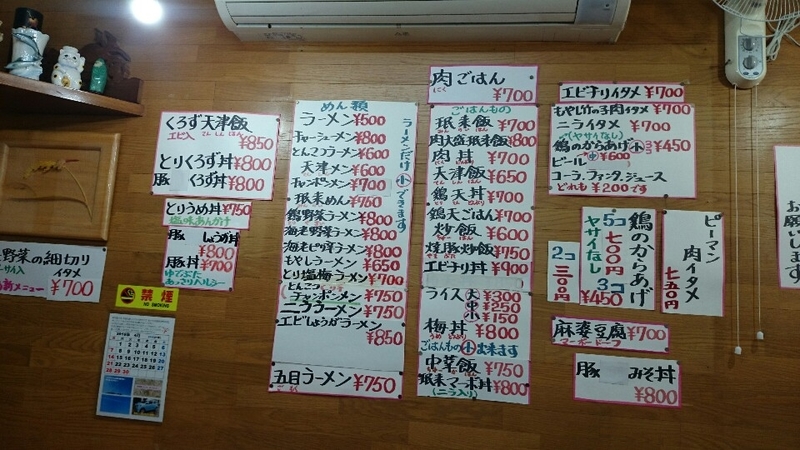 くろず天津飯
エビ入 てんしんはん ¥850
とりくろず丼 ¥800
豚 くろず丼 ¥800
とりうめ丼 ¥750
塩味あんかけ
豚 しょうが丼
¥800
豚丼 ¥700
ゆでぶた
あっさりヘルシー
野菜の細切り
イタメ
新メニュー ¥700
禁煙
NO SMOKING
めん類
ラーメン ¥500
チャーシューメン ¥800
とんこつラーメン ¥600
天津メン ¥600
チャンポンメン ¥700
珉来めん ¥750
鶏野菜ラーメン ¥800
海老野菜ラーメン ¥800
海老ピリ辛ラーメン ¥800
もやしラーメン ¥650
とり塩梅ラーメン ¥700
とんこつ
チャンポンメン ¥750
ニララーメン ¥750
エビしょうがラーメン
¥850
ラーメンだけ小できます
五目ラーメン ¥750
肉ごはん
にく ¥700
ごはんもの
珉来飯 ¥700
肉大盛珉来飯 ¥800
肉丼 ¥700
天津飯 ¥650
鶏天丼 ¥700
鶏天ごはん ¥700
炒飯 ¥600
焼豚炒飯 ¥750
エビチリ丼 ¥900
ライス 大 ¥300
中 ¥250
小 ¥150
梅丼 ¥800
ごはんもの小出来ます
中華飯 ¥750
珉来マーボ丼 ¥800
(ニラ入り)
エビチリイタメ ¥700
もやし竹の子肉イタメ ¥700
ニライタメ ¥700
(ヤサイなし)
鶏のからあげ ¥450
ビール 中 ¥600
コーラ、ファンタ、ジュース
どれも ¥200です
鶏のからあげ
5コ 七〇〇円
ヤサイなし
3コ ¥450
2コ 三〇〇円
ピーマン
肉イタメ
七五〇円
麻婆豆腐 ¥700
マーボードーフ
豚 みそ丼
¥800
お願いします